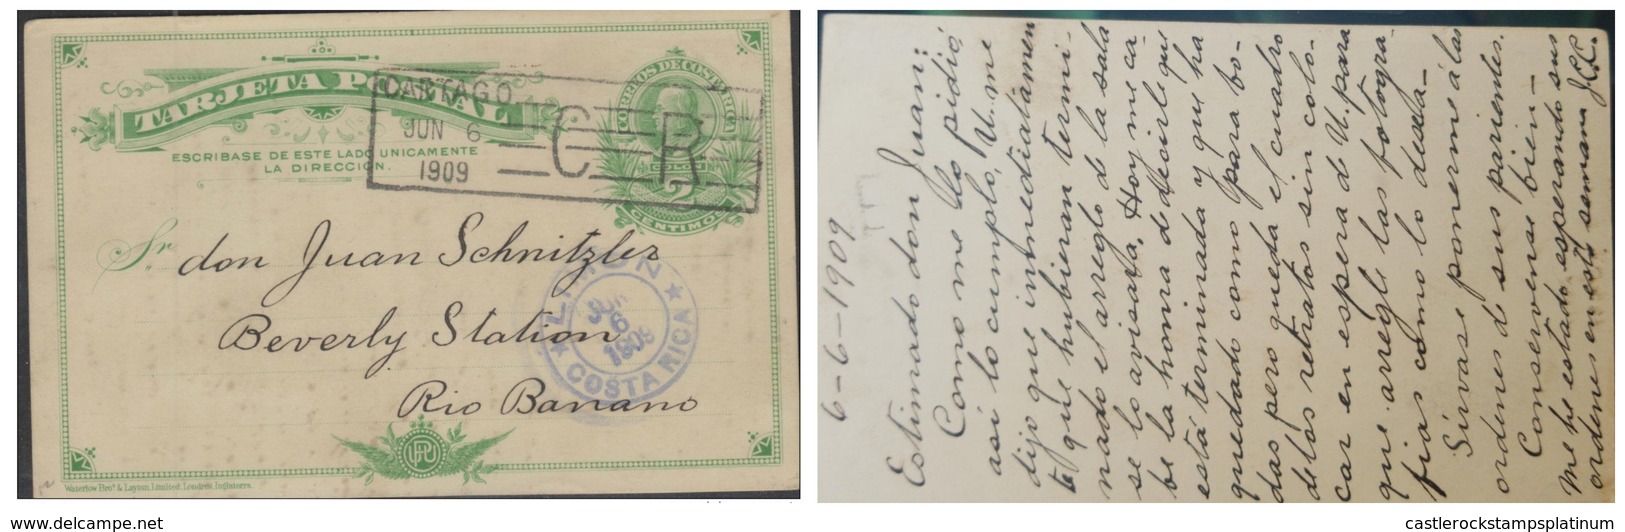 TARJETA POSTAL
ESCRIBASE DE ESTE LADO UNICAMENTE
LA DIRECCION.
CORREOS DE COSTA RICA
2
CENTIMOS
CARTAGO
JUN 6
1909
C R
Sr. don Juan Schnitzler
Beverly Station
Rio Banano
LIMON
COSTA RICA
UPU
Waterlow Bros & Layton, Limited, Londres, Inglaterra.
6-6-1909
Estimado don Juan:
Como me lo pidió,
asi lo cumplo, U. me
dijo que inmediatamen
te que hubieran termi-
nado el arreglo de la sala
se lo avisara, Hoy me ca-
be la honra de decirle que
está terminada y que ha
quedado como para bo-
das pero queda el cuadro
de los retratos sin colo-
car en espera de U. para
que arregle las fotogra-
fias como lo desea-
Sirvase ponerme a las
ordenes de sus parientes.
Conservense bien-
Me he estado esperando sus
ordenes en esta semana
www.delcampe.net
castlerockstampsplatinum